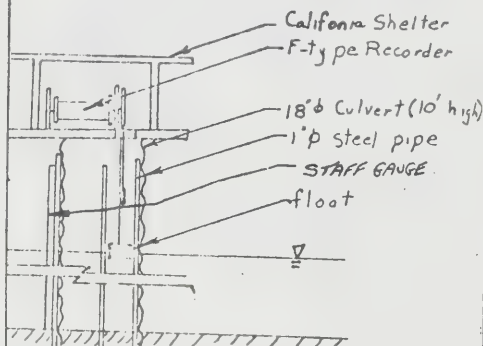 Califonia Shelter
F-type Recorder
18"φ Culvert (10' high)
1"φ steel pipe
STAFF GAUGE
float